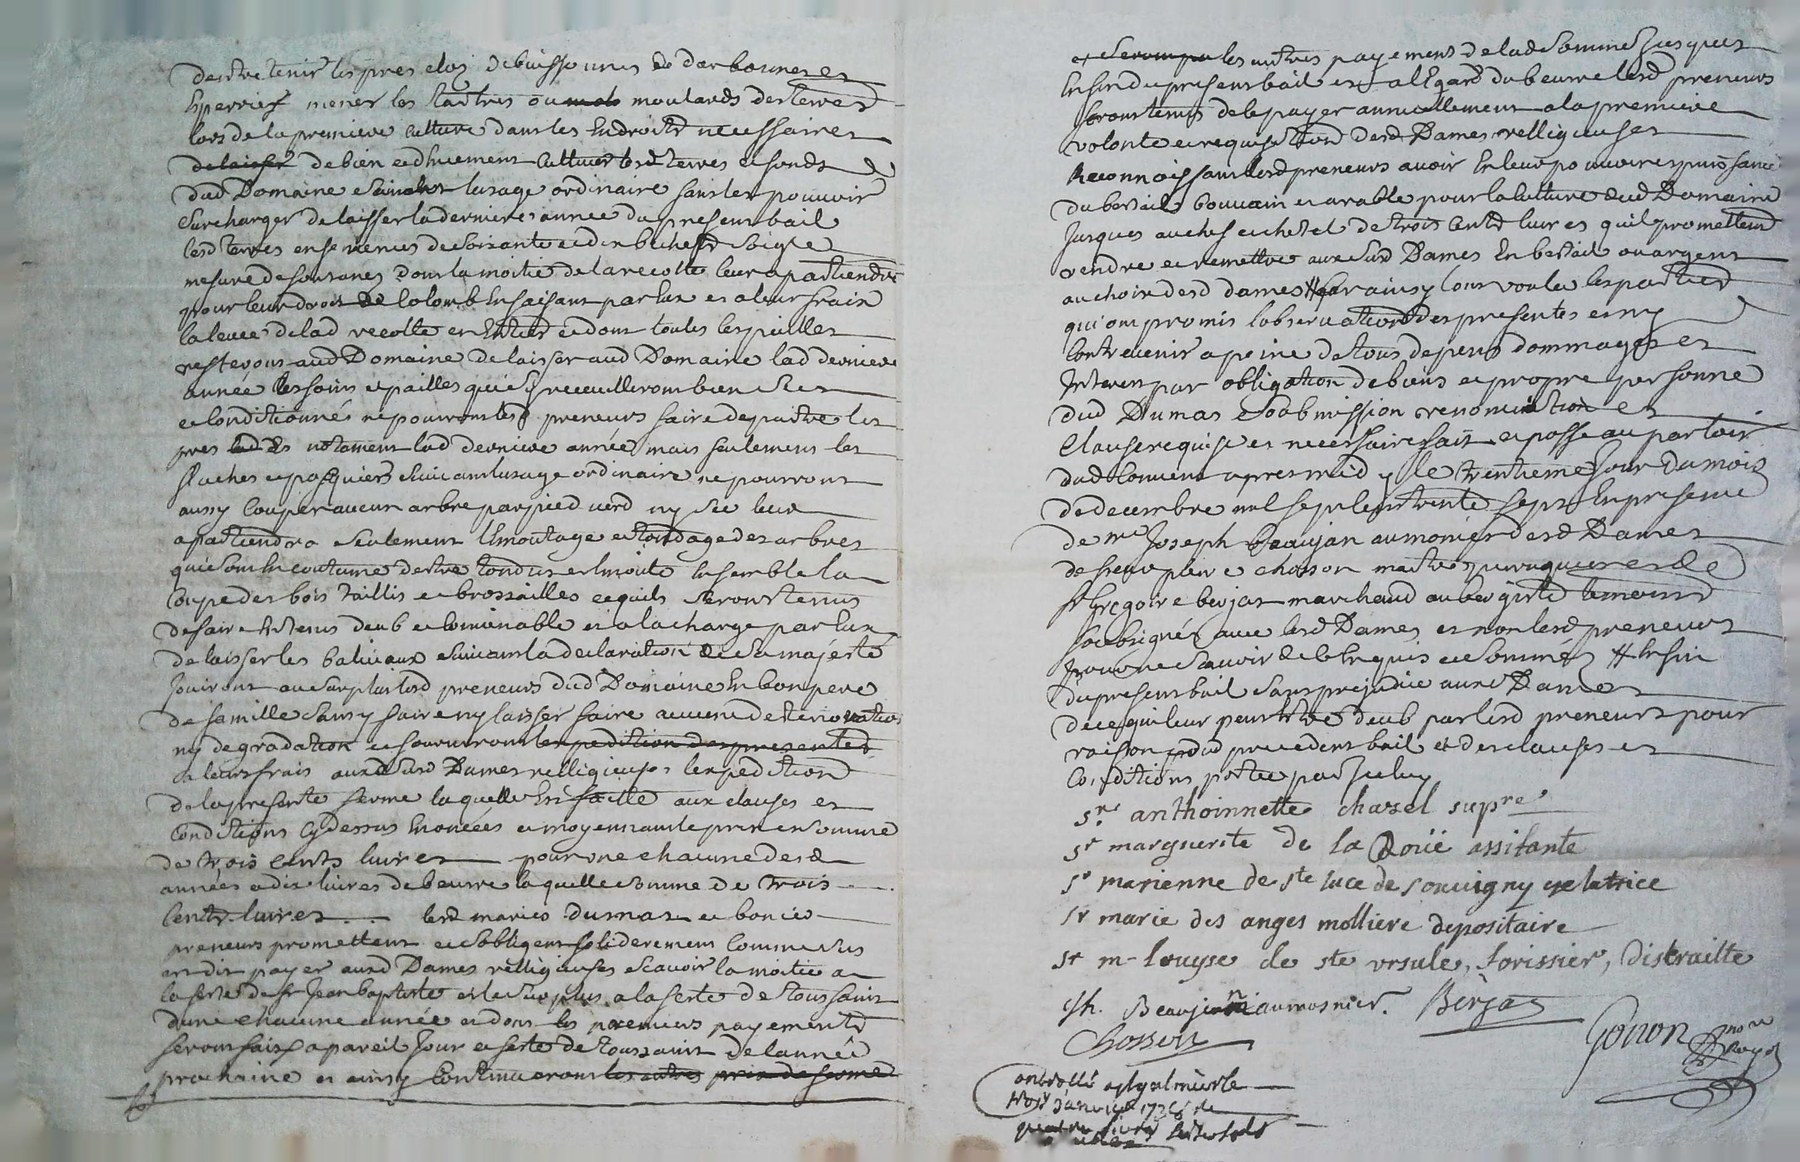 dentretenir les pres clos de buissonnes et darbonnes et
Esperriess mener les tartres ou mols moulards des terres
lors de la premiere culture dans les Endroits necessaires
de laisser de bien et duement cultiver lesd terres et fonds
dud Domaine suivant lusage ordinaire sans les pouvoir
surcharger de laisser la derniere année du present bail
lesd terres ensemencés de soixante et dix bichets soigle
mesure de dont la moitié de la recolte leur apartiendra
pour leur droit de Colomb En faisant par Eux et a leur fraix
la levee de lad recolte en Entier et dont toutes les pailles
resteront aud Domaine de laisser aud Domaine lad derniere
année les foins et pailles qui sy receuilleront bien
et conditionnés ne pourront lesd preneurs faire depaitre les
pres notament lad derniere année mais seulement les
fluches et pasquiers suivant lusage ordinaire ne pourront
aussy couper aucun arbre par pied verd ny sec leur
apartiendra seulement lEmoutage et tondage des arbres
qui sont En coutume destre tondus et Emoutés Ensemble la
coupe des bois taillis et brossailles et quils seront tenus
de faire En tems deub et convenable et a la charge par Eux
de laisser les baliveaux suivant la declaration de sa majesté
Jouiront au surplus lesd preneurs dud Domaine En bon pere
de famille sans y faire ny laisser faire aucune deterioration
ny degradation et fourniront lexpedition des presentes
a leurs frais auxd Dames relligieuses lexpedition
de la presente ferme laquelle Est faitte aux clauses et
conditions Cy dessus Enoncees et moyennant le prix et somme
de trois cents livres pour une chacune desd
années et dix livres de beurre laquelle somme de trois
Cents livres lesd mariés Dumas et bonies
preneurs promettent et sobligent soliderement comme
dit payer auxd Dames relligieuses scavoir la moitié a
la feste de St Jean baptiste et le surplus a la feste de toussaint
dune chacune année et dont les premiers payements
seront faits a pareil Jour et feste de toussaint de lannée
prochaine et ainsy continueront les autres prix de ferme
et les autres payements de lad somme Jusques
En fin du present bail et a lEgard du beurre lesd preneurs
seront tenus de le payer annuellement a la premiere
volonté et requisition desd Dames relligieuses
Reconnoissant lesd preneurs avoir En leur pouvoir et puissance
du bestail bouvain et arable pour la culture dud Domaine
Jusques au chef et chetel de trois cents livres quil promettent
rendre et remettre aux Dames En bestail ou argent
au choix desd dames # car ainsy lont voulu les parties
qui ont promis lobservation des presentes et ny
contrevenir a peine de tous depens dommages et
Interets par obligation de biens et propre personne
dud Dumas soubmission renonciation et
Clause requise et necessaire fait et passé au parloir
dud Couvent apres midy le trentieme Jour du mois
de decembre mil sept cent trente sept En presence
de mre Joseph Beaujan aumonier desd Dames
de sieur pierre chosson maitre peruquier et de
Sr Gregoire berjat marchand aubergiste temoins
soubsignés avec lesd Dames et non lesd preneurs
pour ne scavoir de ce Enquis et sommés # En fin
du present bail sans prejudice auxd Dames
de ce qui leur peut etre deub par lesd preneurs pour
raison du precedent bail et des clauses et
Conditions portée par Iceluy
sr anthoinnette chazel supre
sr marguerite de la Roüe assistante
sr marienne de ste luce de souvigny zelatrice
sr marie des anges molliere depositaire
sr m- louyse de ste ursule, forissier, distraitte
Jh. Beaujan aumosnier. Berjat
Chosson
Gonon nore Royal
Controllé a st galmier le
trois Janvier 1738